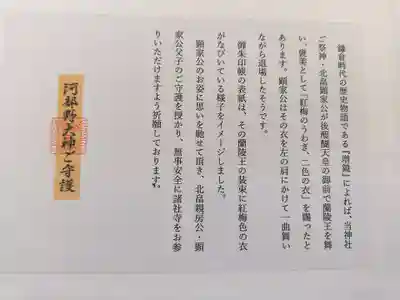 鎌倉時代の歴史物語である『増鏡』によれば、当神社
ご祭神・北畠顕家公が後醍醐天皇の御前で蘭陵王を舞
い、褒美として『紅梅のうわぎ、二色の衣』を賜ったと
あります。顕家公はその衣を左の肩にかけて一曲舞い
ながら退場したそうです。
御朱印帳の表紙は、その蘭陵王の装束に紅梅色の衣
がなびいている様子をイメージしました。
顕家公のお姿に思いを馳せて頂き、北畠親房公・顕
家公父子のご守護を授かり、無事安全に諸社寺をお参
りいただけますよう祈願しております。
阿部野大神ご守護